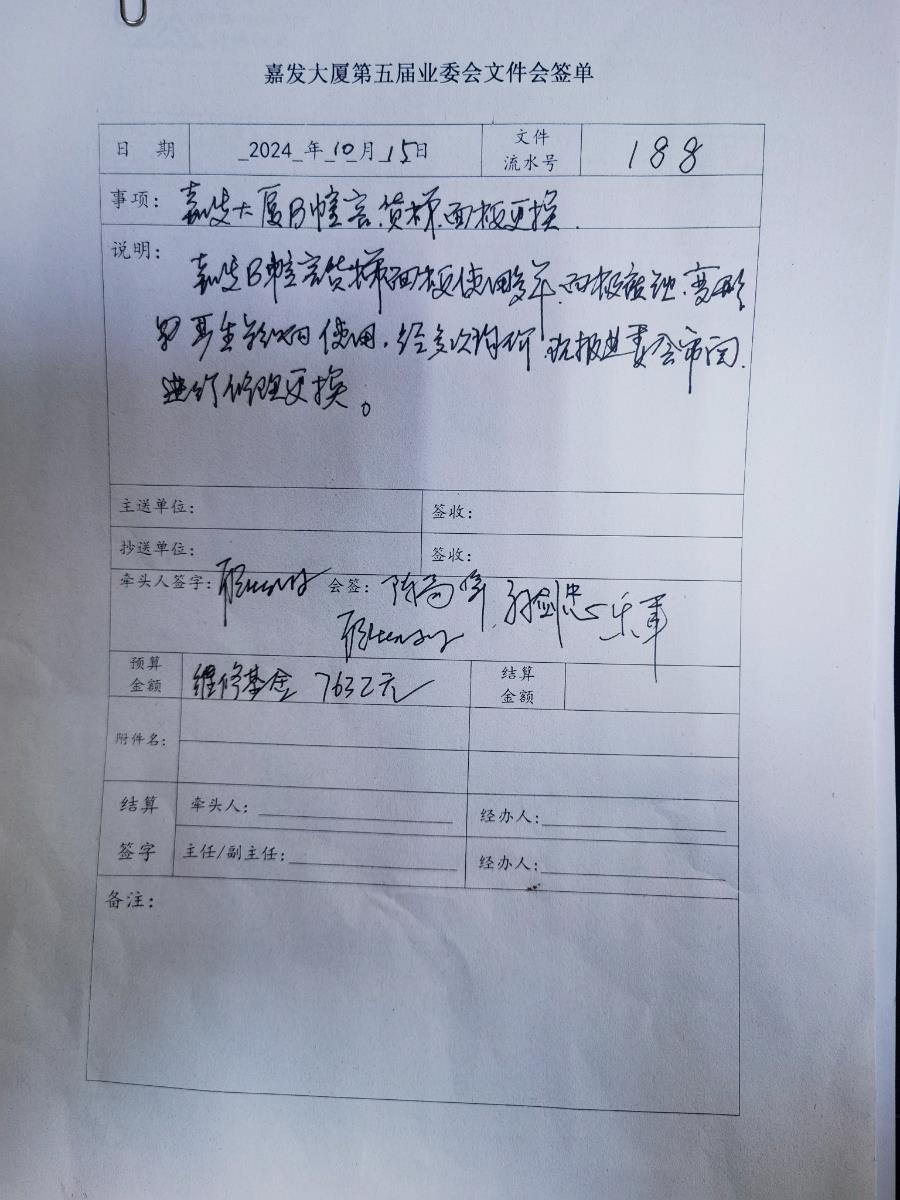 嘉发大厦第五届业委会文件会签单
日 期 2024 年 10 月 15 日 文件流水号 188
事项：嘉发大厦B幢客货梯面板更换.
说明：
嘉发B幢客货梯面板使用多年.面板腐蚀.变形
使用.经多次 业委会
进行修理更换。
主送单位： 签收：
抄送单位： 签收：
牵头人签字： 会签：
预算金额 维修基金 7632元 结算金额
附件名：
结算签字 牵头人： 经办人：
主任/副主任： 经办人：
备注：